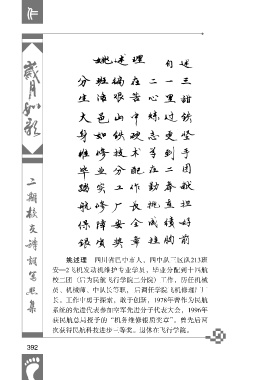 作
岁月如歌
二期校友诗词写照集
姚述理 自述
分班编在二一三
生活艰苦心里甜
大邑山中炼过铁
身如铁硬志更坚
维修技术学到手
毕业分配在二团
踏实工作勤奉献
航修厂长挑直担
保障安全成绩好
银质奖章挂胸前
姚述理 四川省巴中市人,四中队三区队213班
安—2飞机发动机维护专业学员,毕业分配到十四航
校二团(后为民航飞行学院二分院)工作,历任机械
员、机械师、中队长等职,后调任学院飞机修理厂厂
长。工作中勇于探索,敢于创新,1978年曾作为民航
系统的先进代表参加空军先进分子代表大会,1996年
获民航总局授予的“机务维修银质奖章”。曾先后两
次获得民航科技进步三等奖。退休在飞行学院。
392